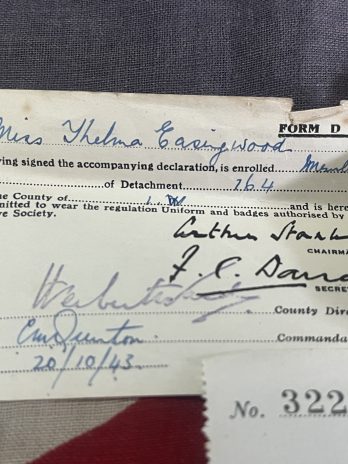 FORM D
Miss Thelma Easingwood
ing signed the accompanying declaration, is enrolled
of Detachment 764
ne County of I.W and is here
mitted to wear the regulation Uniform and badges authorised by
ve Society.
Arthur Stanl
CHAIRMA
F. C. Dav
SECRE
County Dire
Commanda
20/10/43
No. 322